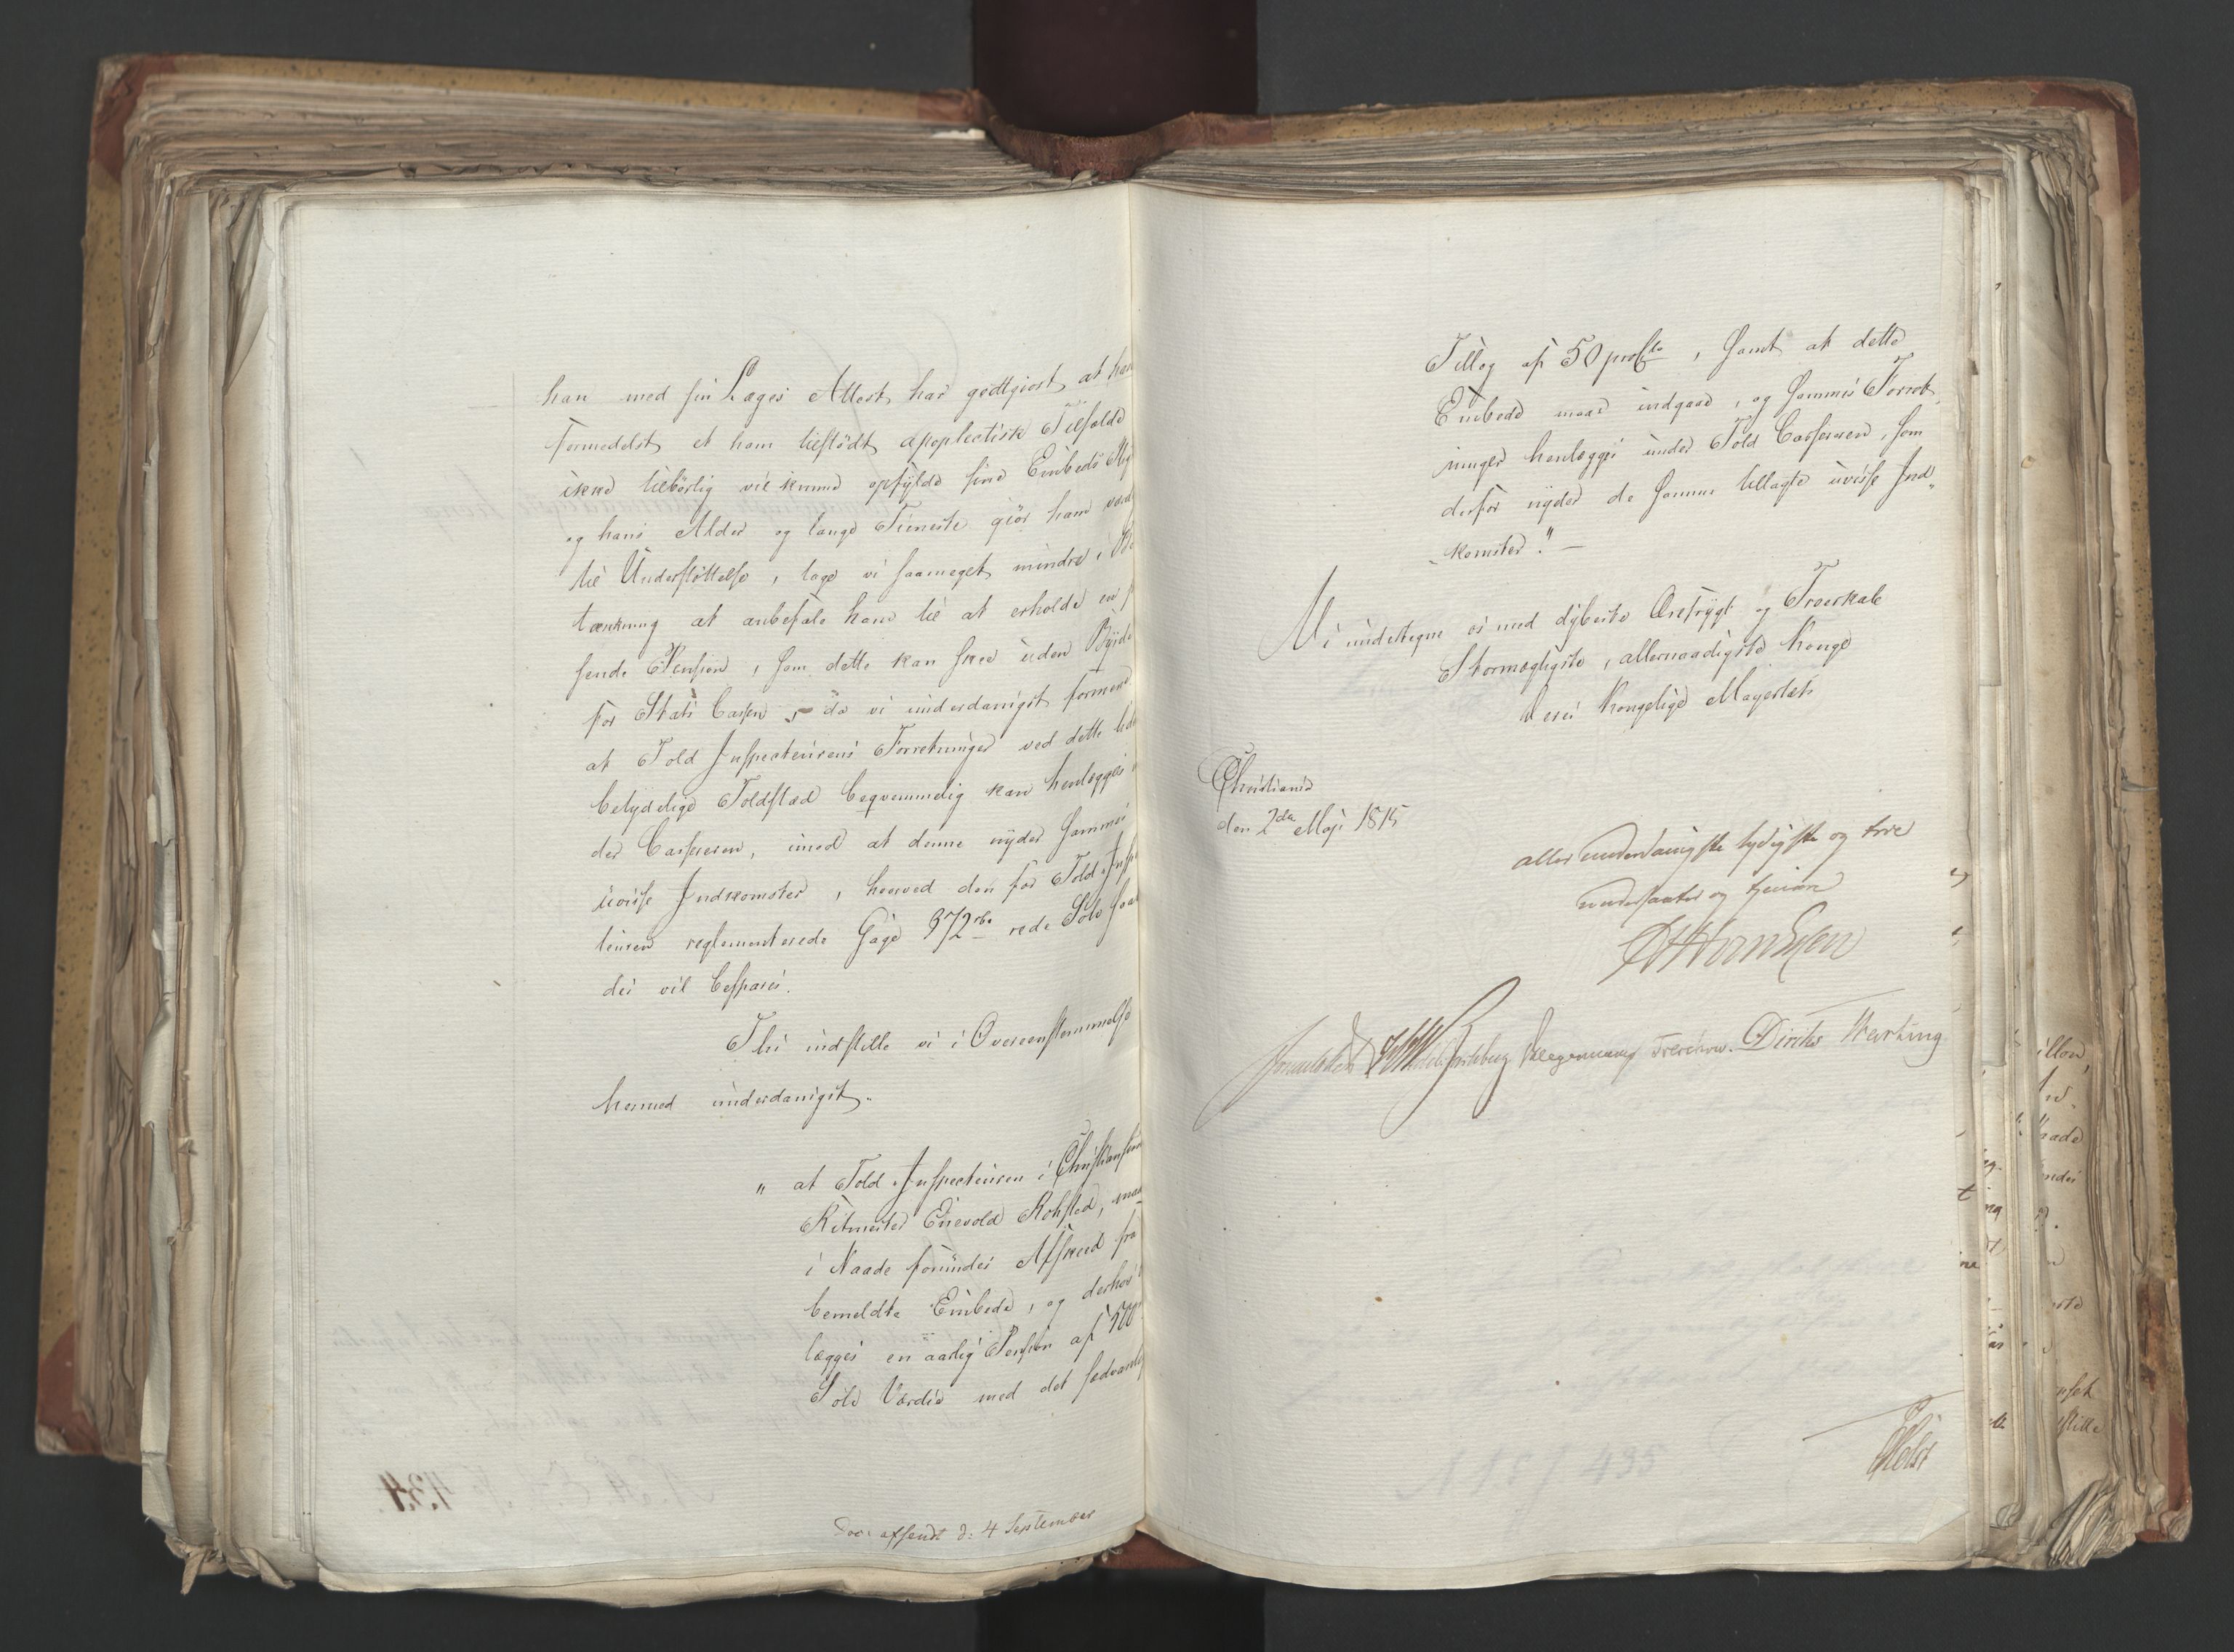 han med sin Læges Attest har godtgiort, at han
formedelst et ham tilstødt apoplectisk Tilfælde
ikke tilbørlig vil kunne opfylde sine Embeds
og hans Alder og lange Tieneste giør ham værd
til Understøttelse, tage vi saameget mindre i Be
tænkning at anbefale ham til at erholde en p
sende Pension, som dette kan skee uden Byrde
for Stats Cassen, da vi underdanigst formene
at Told Inspecteurens Forretninger ved dette
betydelige Toldsted beqvemmelig kan henlægges
der Casserern, imod at denne nyder sammes
uvisse Indkomster, hvorved den for Told Insp
teuren reglementerede Gage 372 rbd rede Sølv saa
des vil bespares.
Thi indstille vi i Overeensstemmelse
hermed underdanigst.
" at Told Inspecteuren i Christiansund
Ritmester Enevold Rohsted, maa
i Naade forundes Afskeed fra
bemeldte Embede, og derhos
lægges en aarlig Pension af 500
Sølv Værdie med det sædvanlig
Doc: afsendt d: 4 September
Tillæg af 50 proCto, samt at dette
Embede maae indgaae, og sammes Forret,
ninger henlægges under Told Casserern, som
derfor nyder de samme tillagte uvisse Ind,
komster." —
Vi undertegne os med dybeste Ærefrygt og Troeskab
Stormægtigste, allernaadigste Konge
Deres Kongelige Mayestæts
Christiania
den 2den Maji 1815
allerunderdanigste lydigste og troe
undersaatter og tjenere
Sommerhielm Wedel Jarlsberg Treschow. Diriks Hartung
Holst